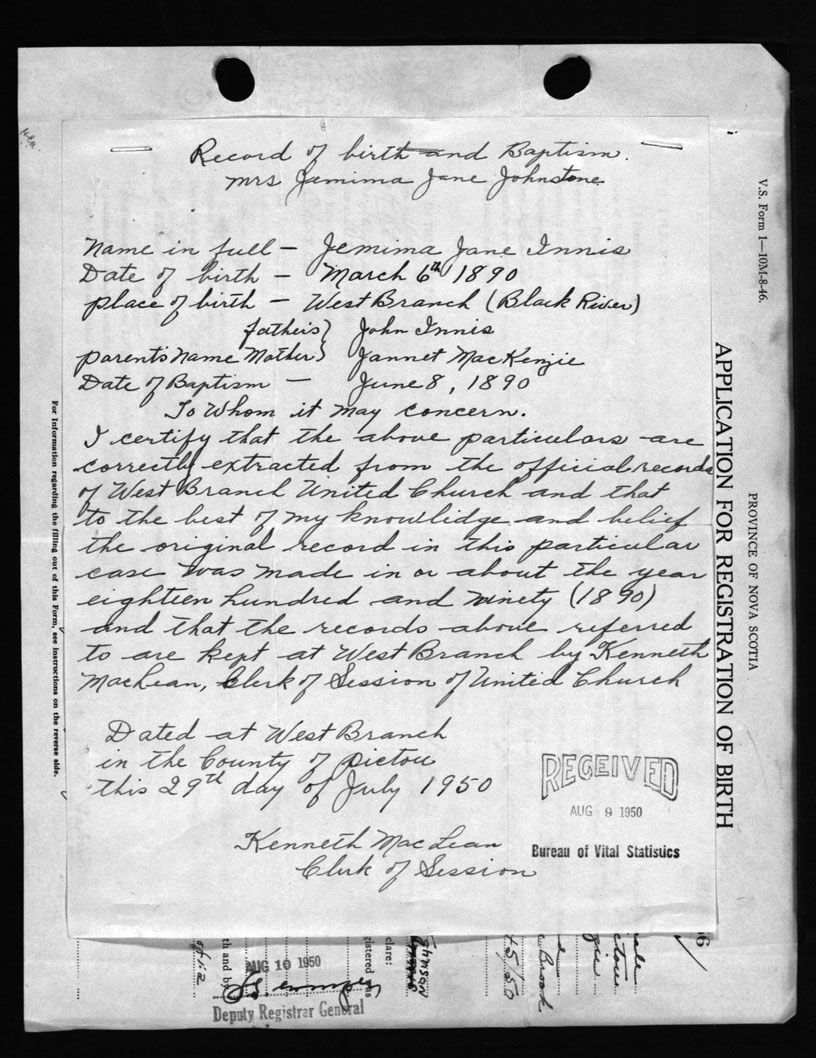 Record of birth and Baptism.
Mrs Jemima Jane Johnstone
Name in full – Jemima Jane Innis
Date of birth – March 6th 1890
place of birth – West Branch (Black River)
fathers } John Innis
parents Name Mother } Jannet MacKenzie
Date of Baptism – June 8, 1890
To Whom it may concern.
I certify that the above particulars are
correctly extracted from the official records
of West Branch United Church and that
to the best of my knowlidge and belief
the original record in this particular
case was made in or about the year
eighteen hundred and ninety (1890)
and that the records above referred
to are kept at West Branch by Kenneth
MacLean, Clerk of Session of United Church
Dated at West Branch
in the County of pictou
this 29th day of July 1950
Kenneth MacLean
Clerk of Session
RECEIVED
AUG 9 1950
Bureau of Vital Statistics
V.S. Form 1—10M-8-46.
PROVINCE OF NOVA SCOTIA
APPLICATION FOR REGISTRATION OF BIRTH
For information regarding the filling out of this Form, see instructions on the reverse side.
AUG 10 1950
Deputy Registrar General
th and by
gistered as
clare:
Johnson
Brook